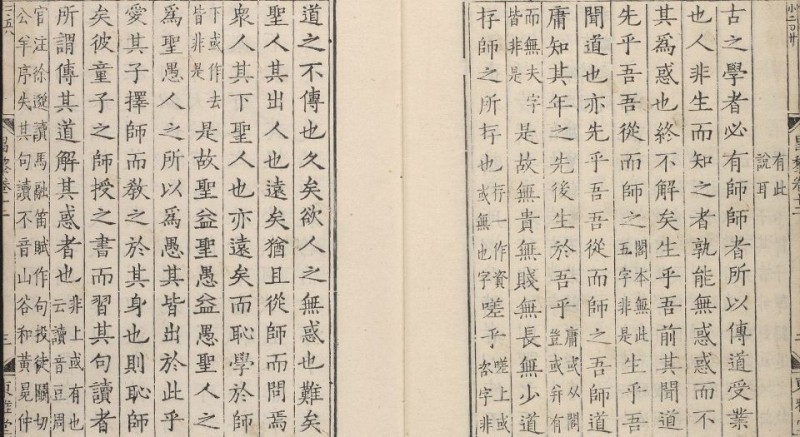 昌黎卷十二
有此
說耳
古之學者必有師師者所以傳道受業
也人非生而知之者孰能無惑惑而不
其爲惑也終不解矣生乎吾前其聞道
先乎吾吾從而師之閣本無此五字非是生乎吾
聞道也亦先乎吾吾從而師之吾師道
庸知其年之先後生於吾乎庸或从閣豈或并有
而無夫字皆非是是故無貴無賤無長無少道
存師之所存也存一作資或無也字嗟乎嗟上或字非
道之不傳也久矣欲人之無惑也難矣
聖人其出人也遠矣猶且從師而問焉
衆人其下聖人也亦遠矣而恥學於師
下或作去皆非是是故聖益聖愚益愚聖人之
爲聖愚人之所以爲愚其皆出於此乎
愛其子擇師而教之於其身也則恥師
矣彼童子之師授之書而習其句讀者
所謂傳其道解其惑者也非上或有也云讀音豆周
官注徐邈讀馬融笛賦作句投徒鬭切
公羊序失其句讀不音山谷和黃冕仲
昌黎卷十二
三
東雅堂